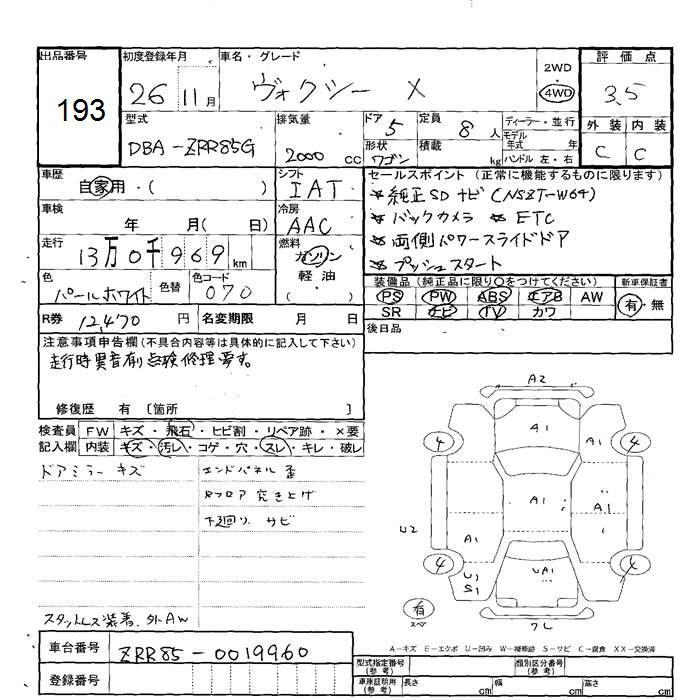 出品番号
193
初度登録年月
26 11月
車名・グレード
ヴォクシー X
2WD
4WD
評価点
3.5
型式
DBA-ZRR85G
排気量
2000 cc
ドア
5
定員
8人
形状
ワゴン
積載
kg
ディーラー・並行
モデル年式 年
ハンドル 左・右
外装
C
内装
C
車歴
自家用・( )
シフト
IAT
車検
年 月( 日)
冷房
AAC
走行
13万0千969km
燃料
ガソリン
軽油
( )
色
パールホワイト
色替
色コード
070
R券
12,470円
名変期限
月 日
セールスポイント(正常に機能するものに限ります)
★純正SDナビ(NSZT-W64)
★バックカメラ ★ETC
★両側パワースライドドア
★プッシュスタート
装備品(純正品に限り○をつけてください)
新車保証書
PS PW ABS エアB AW
SR ナビ TV カワ
有・無
後日品
注意事項申告欄(不具合内容等は具体的に記入して下さい)
走行時異音有り点検修理要す。
修復歴 有〔箇所 〕
検査員記入欄
FW キズ・飛石・ヒビ割・リペア跡・×要
内装 キズ・汚レ・コゲ・穴・スレ・キレ・破レ
ドアミラーキズ
エンドパネル歪
Rフロア突き上げ
下廻り サビ
スタットレス装着、外AW
A2
4
A1
4
A1
A1
A1
U2
A1
4
U1
S1
UA1
4
有
スペア
7L
A-キズ E-エクボ U-凹み W-補修跡 S-サビ C-腐食 XX-交換済
車台番号
ZRR85-0019960
登録番号
型式指定番号(参考)
類別区分番号(参考)
車庫証明用(参考)
長さ cm
幅 cm
高さ cm